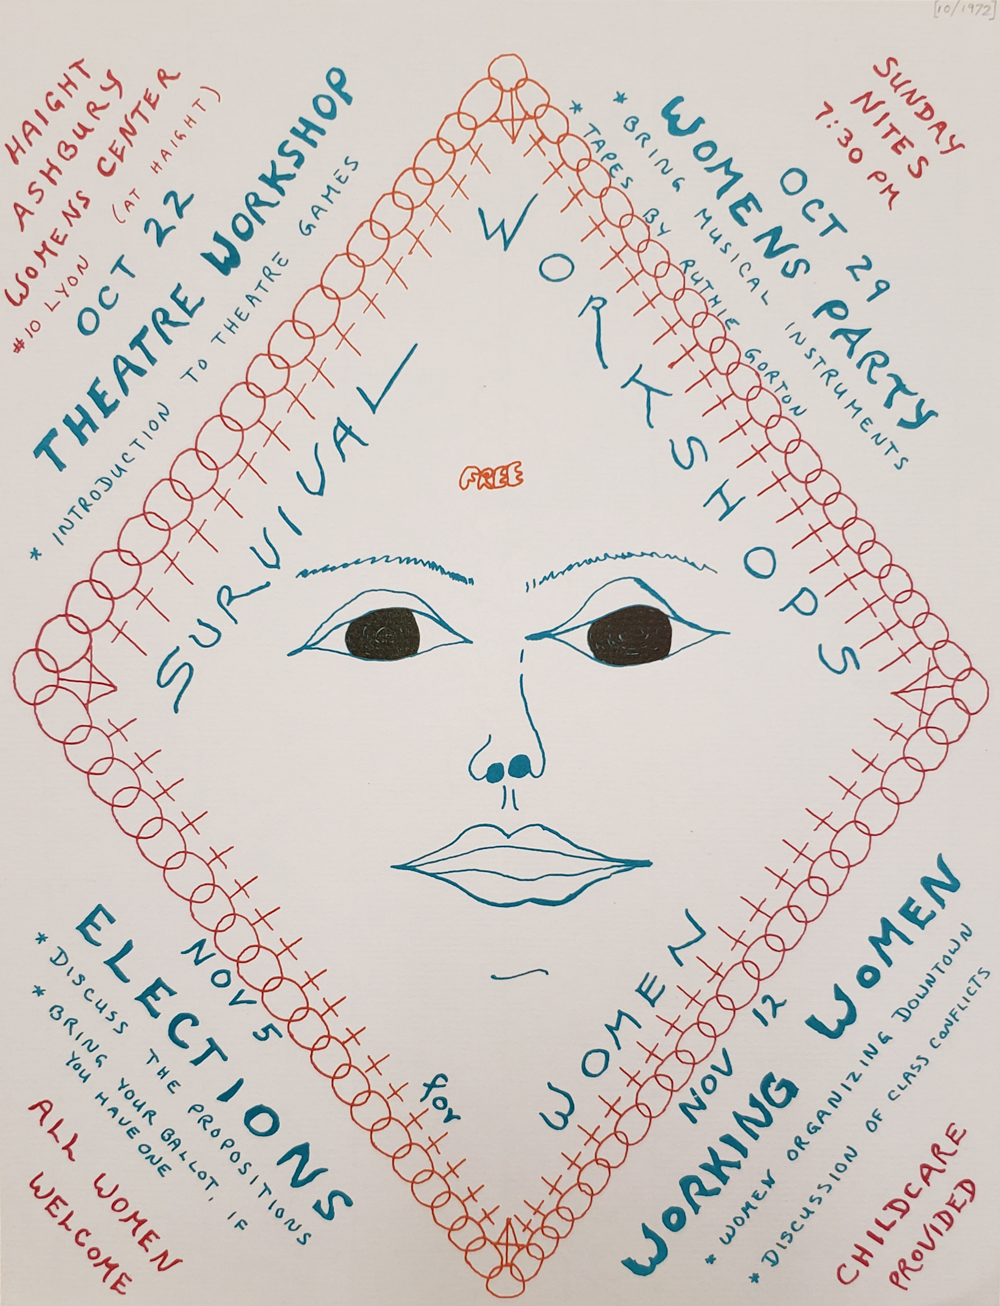 [10/1972]
HAIGHT
ASHBURY
WOMENS CENTER
#10 LYON (AT HAIGHT)
OCT 22
THEATRE WORKSHOP
* INTRODUCTION TO THEATRE GAMES
SUNDAY
NITES
7:30 PM
OCT 29
WOMENS PARTY
* BRING MUSICAL INSTRUMENTS
* TAPES BY RUTHIE GORTON
SURVIVAL
WORKSHOPS
FREE
for
WOMEN
NOV 5
ELECTIONS
* DISCUSS THE PROPOSITIONS
* BRING YOUR BALLOT, IF
YOU HAVE ONE
ALL WOMEN
WELCOME
NOV 12
WORKING WOMEN
* WOMEN ORGANIZING DOWNTOWN
* DISCUSSION OF CLASS CONFLICTS
CHILDCARE
PROVIDED